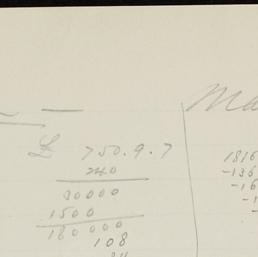 Ma
£ 750.9.7
240
30000
1500
180000
108
1816
-136
-16
-1